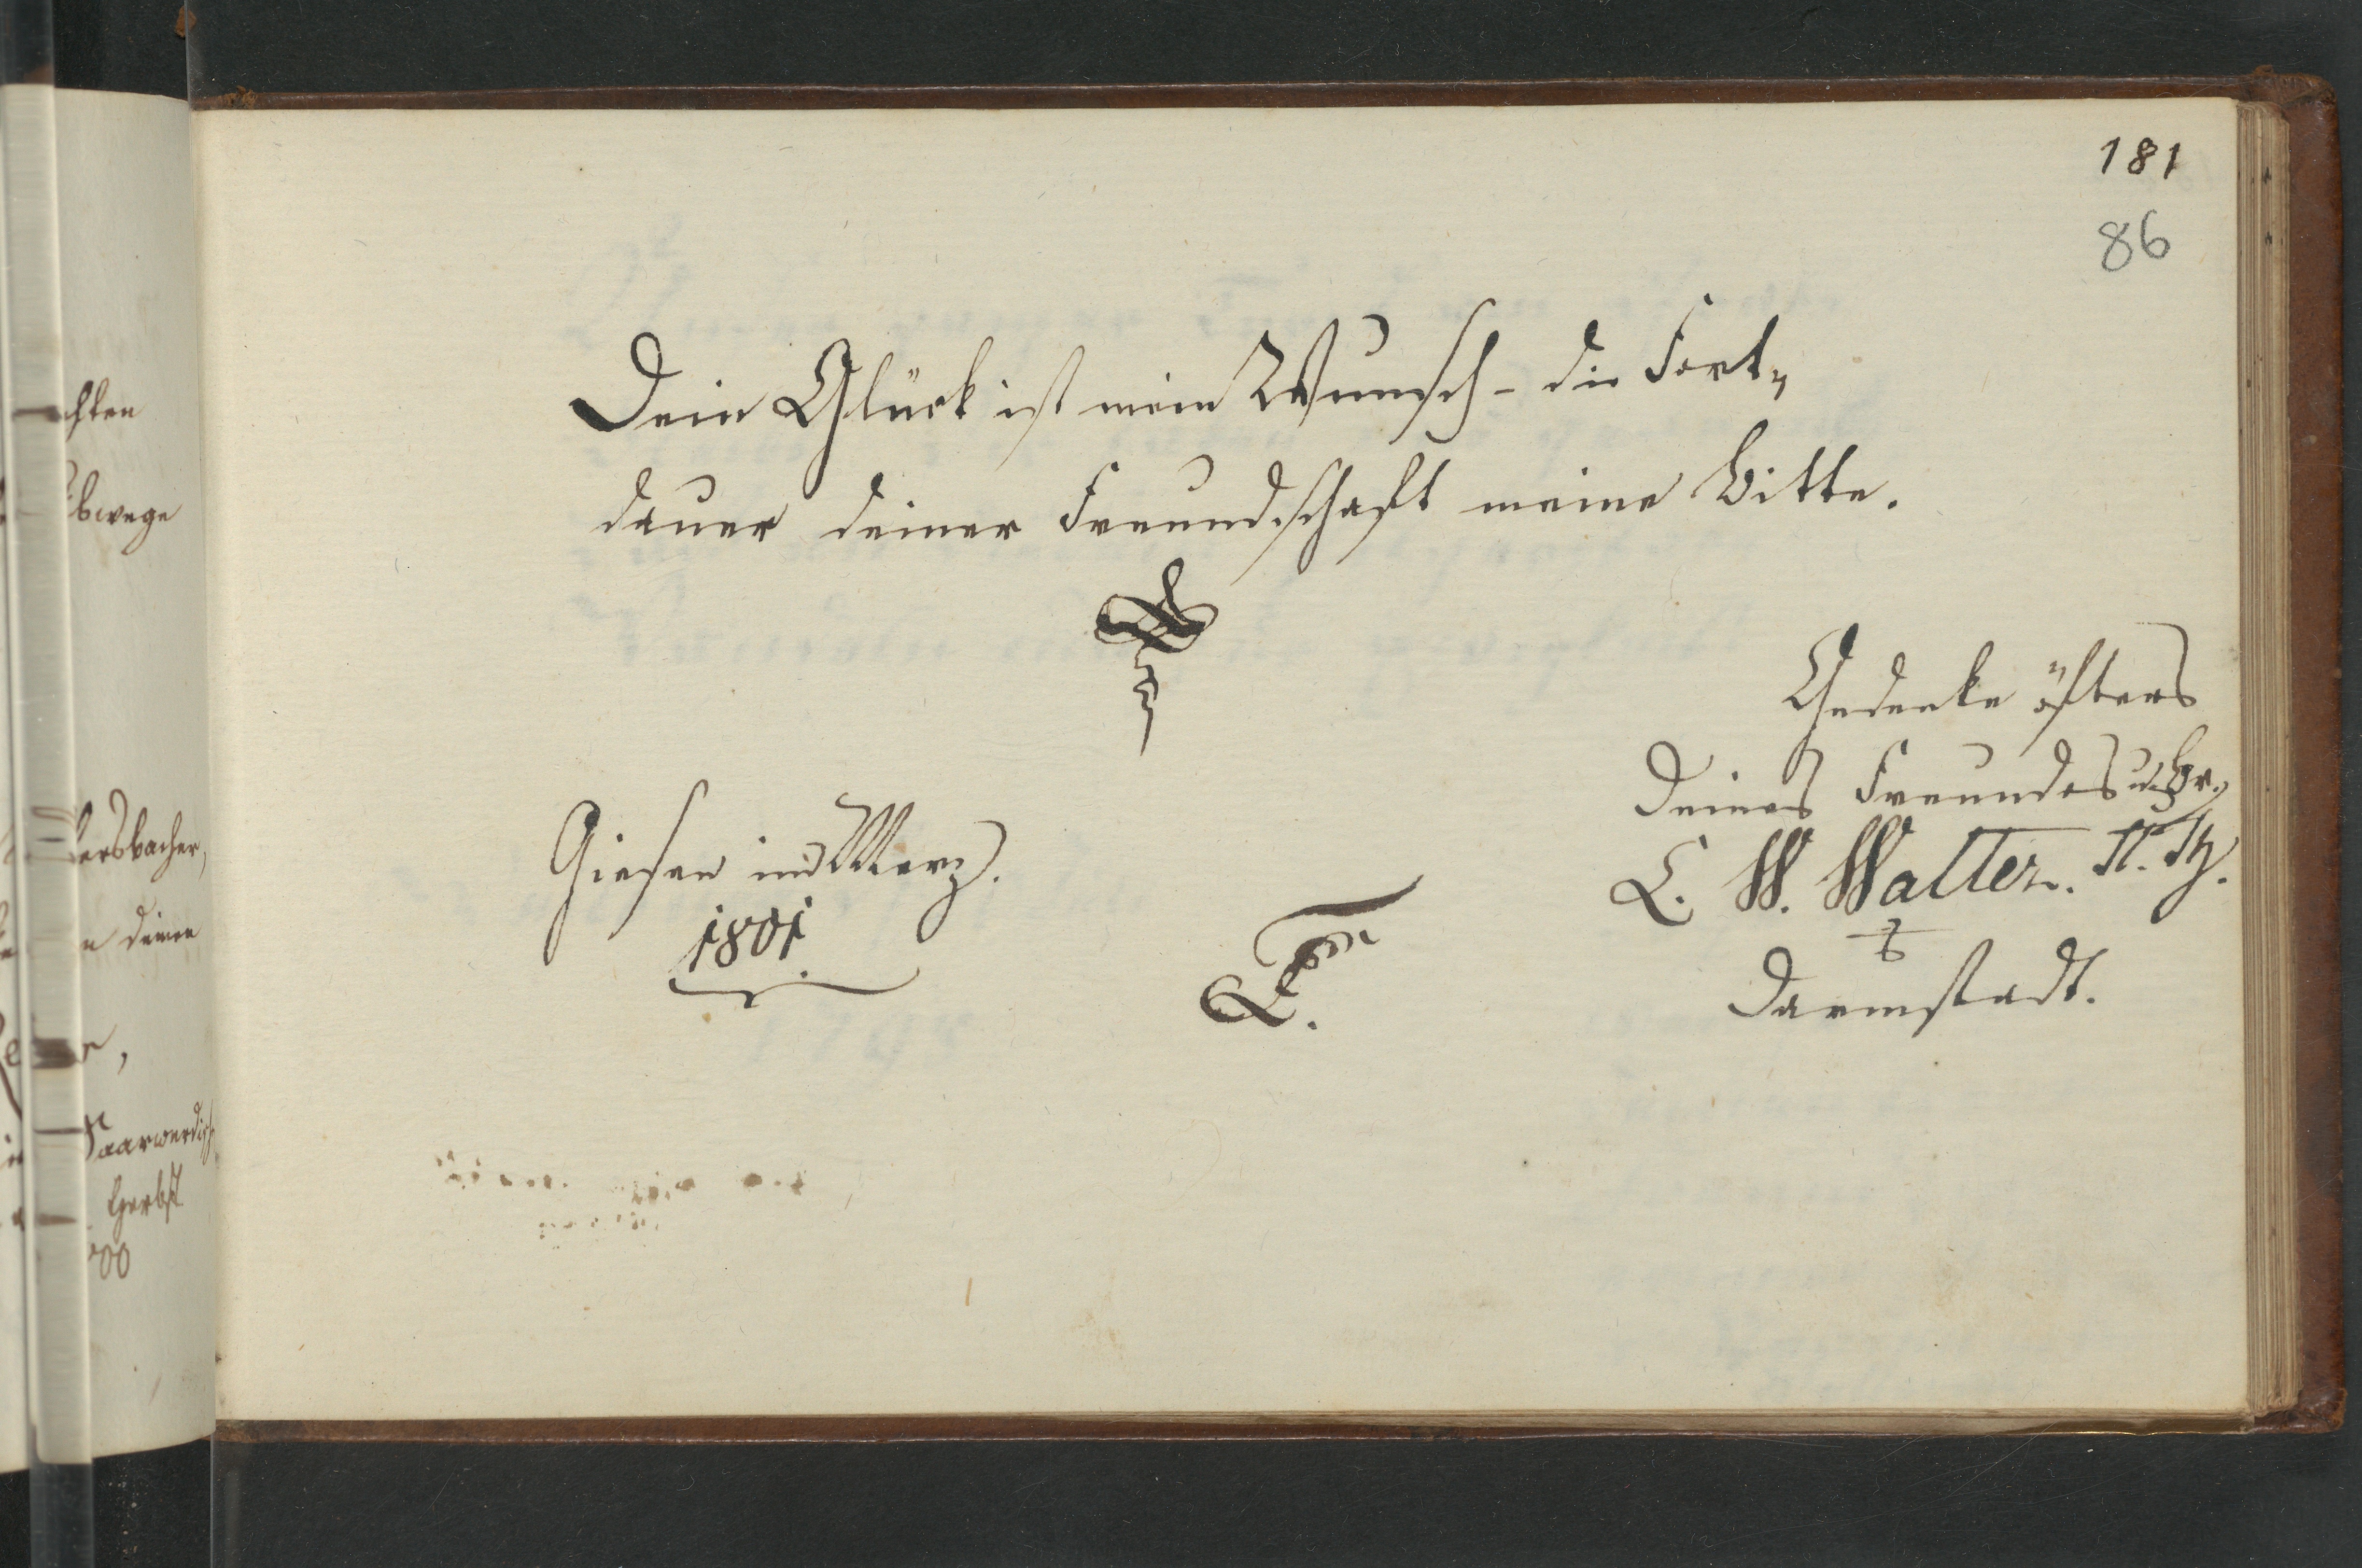 181
86
Dein Glück ist mein Wunsch - die Fort„
dauer deiner Freundschaft meine Bitte.
Gedenke öfters
Deines Freundes u. Br.
L. W. Walter. St. Th.
Darmstadt.
Giesen im Merz.
1801
chten
bwege
ersbacher,
deinen
Saarwerdisch
Herbst
00